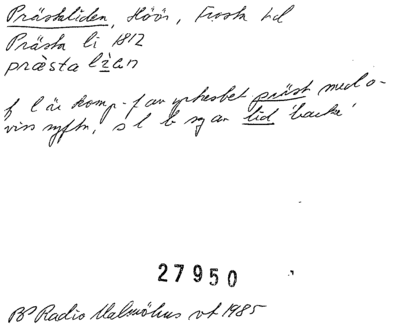 Prästaliden, Höör, Frosta hd
Prästa li 1812
præsta lìan
f l är komp-f av yrkesbet präst med o-
viss syftn, s l b sg av lid 'backe'
27950
BP Radio Malmöhus vt 1985